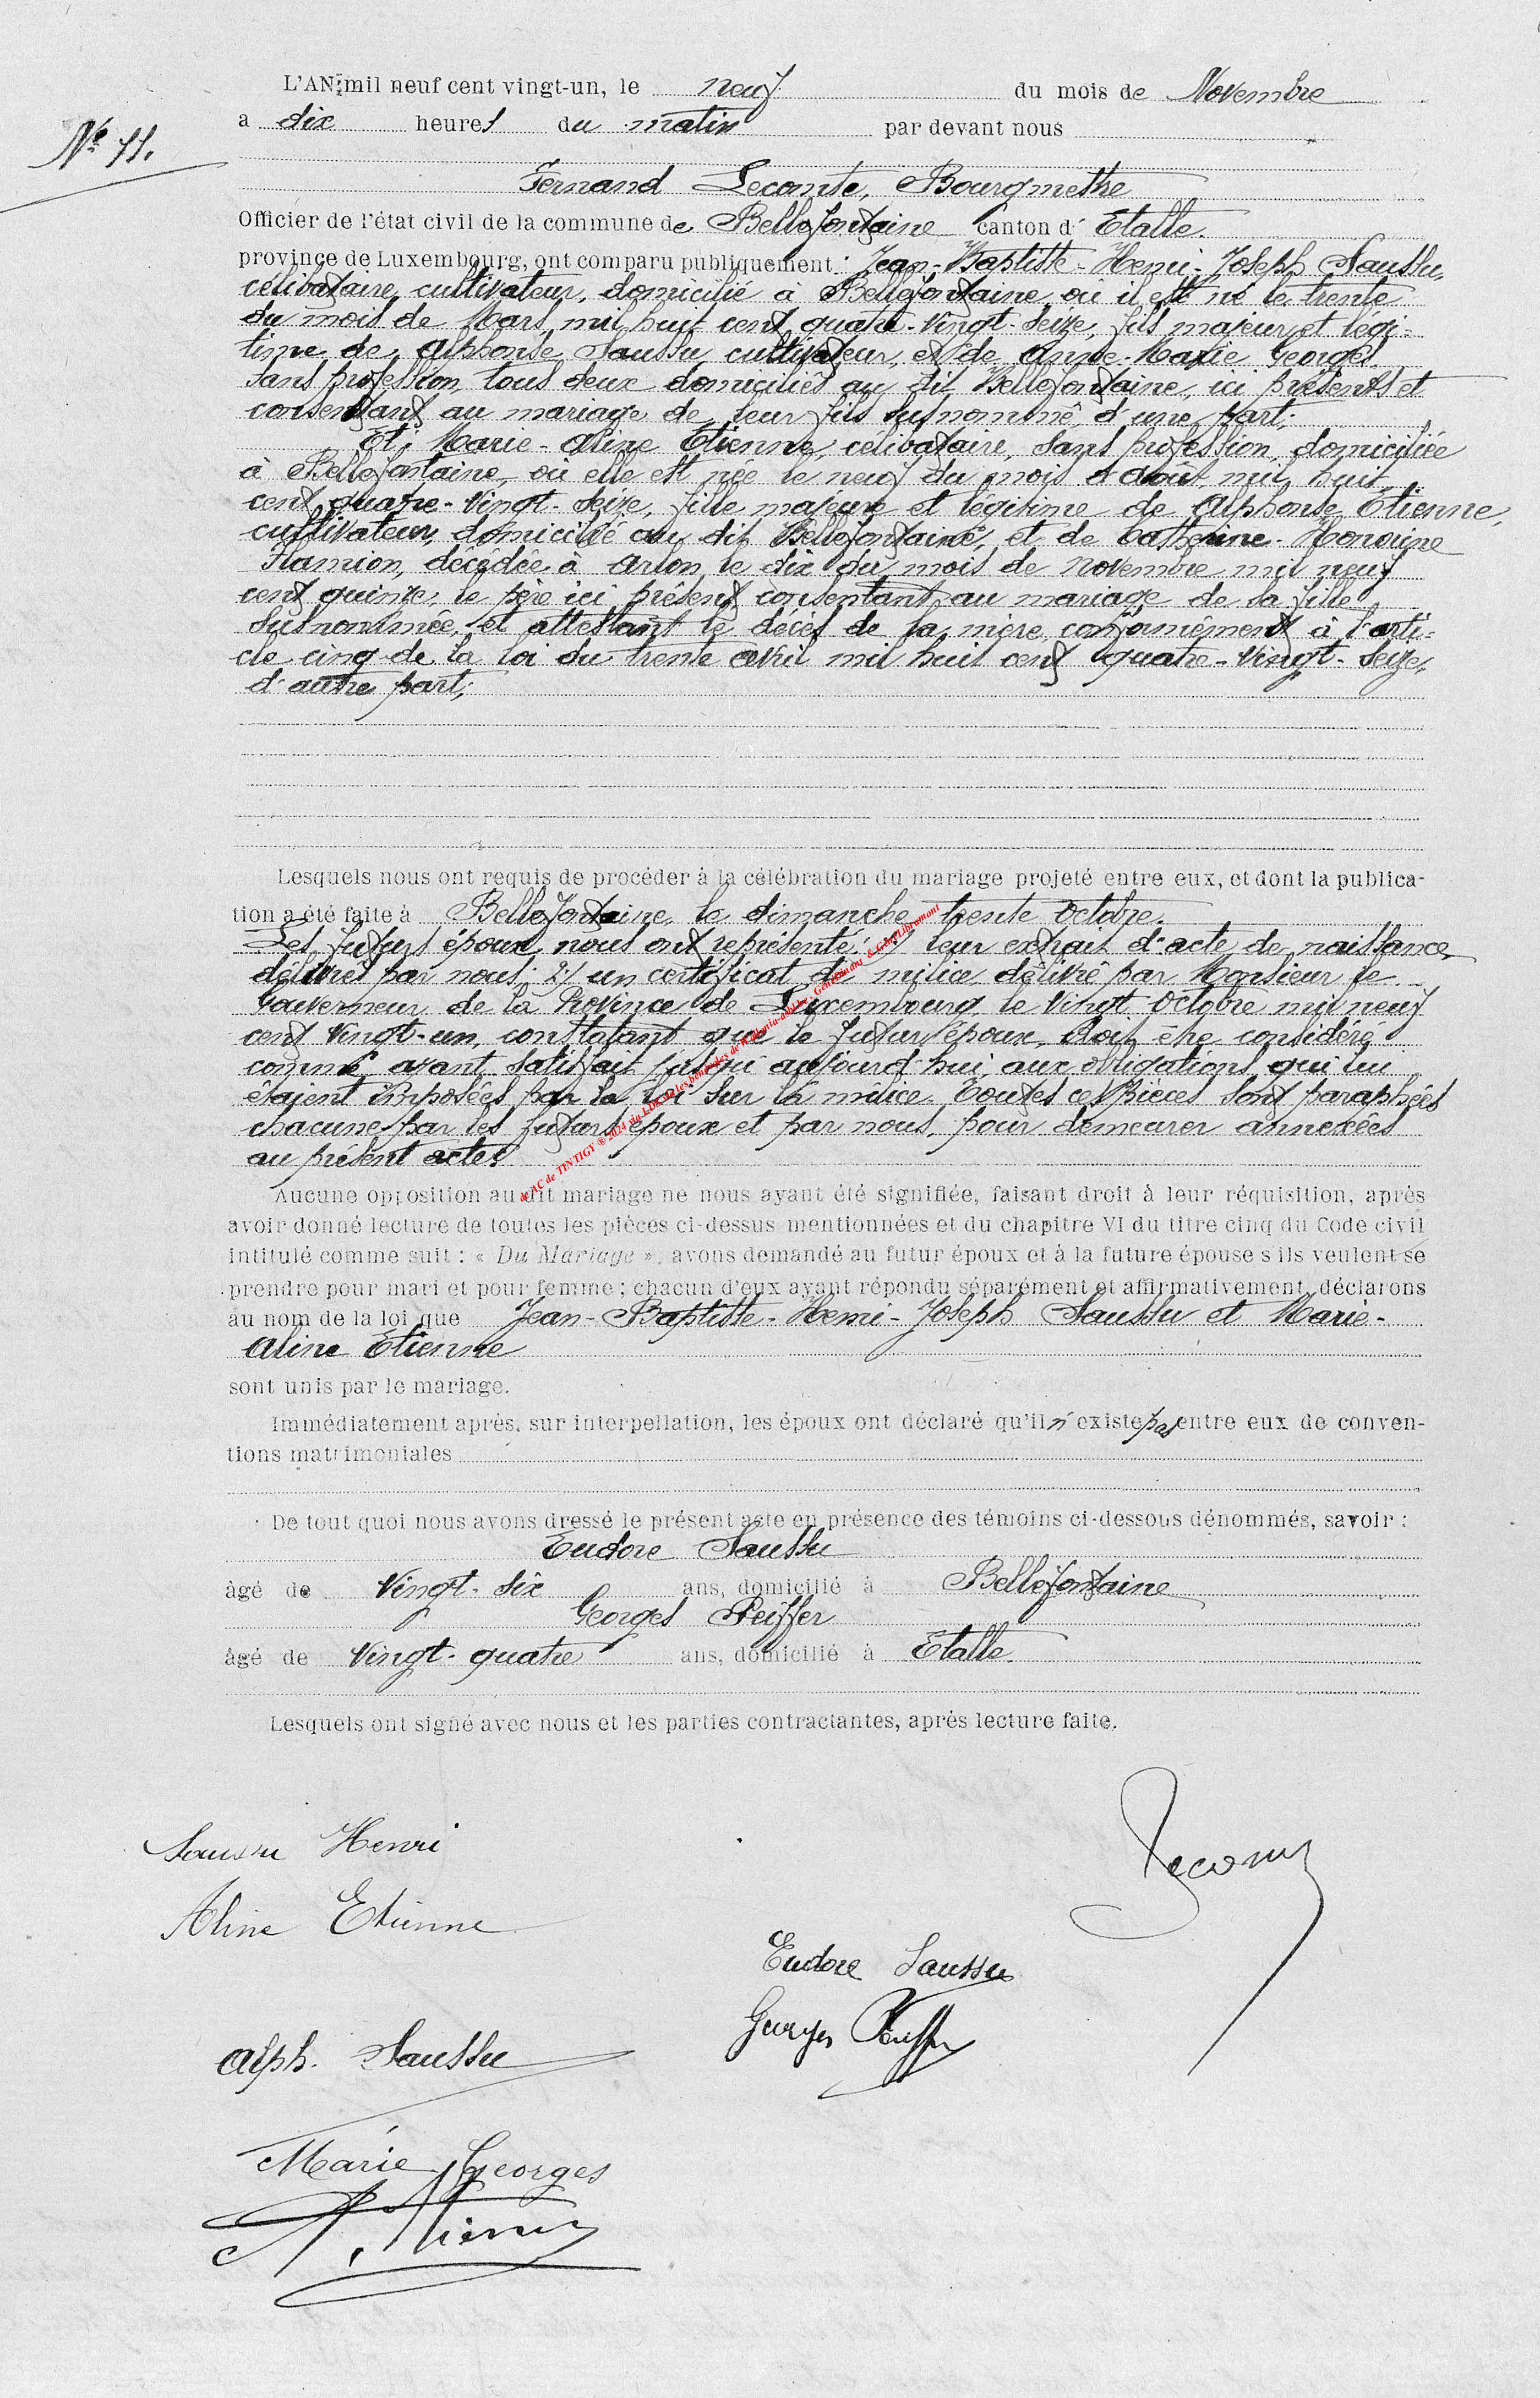 L'AN mil neuf cent vingt-un, le neuf du mois de Novembre
a dix heures du matin par devant nous
N° 11.
Fernand Lecomte, Bourgmestre
Officier de l'état civil de la commune de Bellefontaine canton d'Etalle.
province de Luxembourg, ont comparu publiquement : Jean-Baptiste-Henri-Joseph Saussu,
célibataire, cultivateur, domicilié à Bellefontaine, où il est né le trente
du mois de Mars mil huit cent quatre-vingt-seize, fils majeur et légi-
time de Alphonse Saussu cultivateur, et de Anne-Marie Georges
sans profession, tous deux domiciliés au dit Bellefontaine, ici présents et
consentant au mariage de leur fils susnommé, d'une part;
Et: Marie-Aline Etienne, célibataire, sans profession, domiciliée
à Bellefontaine, où elle est née le neuf du mois d'août mil huit
cent quatre-vingt-seize, fille majeure et légitime de Alphonse Etienne,
cultivateur, domicilié au dit Bellefontaine, et de Catherine-Honorine
Flamion, décédée à Arlon le dix du mois de novembre mil neuf
cent quinze; le père ici présent consentant au mariage de sa fille
susnommée, et attestant le décès de la mère, conformément à l'arti-
cle cinq de la loi du trente avril mil huit cent quatre-vingt-seize,
d'autre part;
Lesquels nous ont requis de procéder à la célébration du mariage projeté entre eux, et dont la publica-
tion a été faite à Bellefontaine, le dimanche trente octobre.
Les futurs époux nous ont représenté: 1/ leur extrait d'acte de naissance,
délivrés par nous; 2/ un certificat de milice délivré par Monsieur le
Gouverneur de la Province de Luxembourg le vingt octobre mil neuf
cent vingt-un, constatant que le futur époux, doit être considéré
comme ayant satisfait jusqu'aujourd'hui, aux obligations qui lui
étaient imposées par la loi sur la milice. Toutes ces pièces sont paraphées
chacune par les futurs époux et par nous, pour demeurer annexées
au présent acte.
de AC de TINTIGY ® 2024 via LDC et les bénévoles de
Aucune opposition au dit mariage ne nous ayant été signifiée, faisant droit à leur réquisition, après
avoir donné lecture de toutes les pièces ci-dessus mentionnées et du chapitre VI du titre cinq du Code civil
intitulé comme suit : « Du Mariage », avons demandé au futur époux et à la future épouse s'ils veulent se
prendre pour mari et pour femme ; chacun d'eux ayant répondu séparément et affirmativement, déclarons
au nom de la loi que Jean-Baptiste-Henri-Joseph Saussu et Marie-
Aline Etienne
sont unis par le mariage.
Immédiatement après, sur interpellation, les époux ont déclaré qu'il n'existe pas entre eux de conven-
tions matrimoniales
De tout quoi nous avons dressé le présent acte en présence des témoins ci-dessous dénommés, savoir :
Eudore Saussu
âgé de vingt-six ans, domicilié à Bellefontaine
Georges Peiffer
âgé de vingt-quatre ans, domicilié à Etalle.
Lesquels ont signé avec nous et les parties contractantes, après lecture faite.
Saussu Henri
Lecomte
Aline Etienne
Eudore Saussu
Georges Peiffer
Alph. Saussu
Marie Georges
A. Etienne